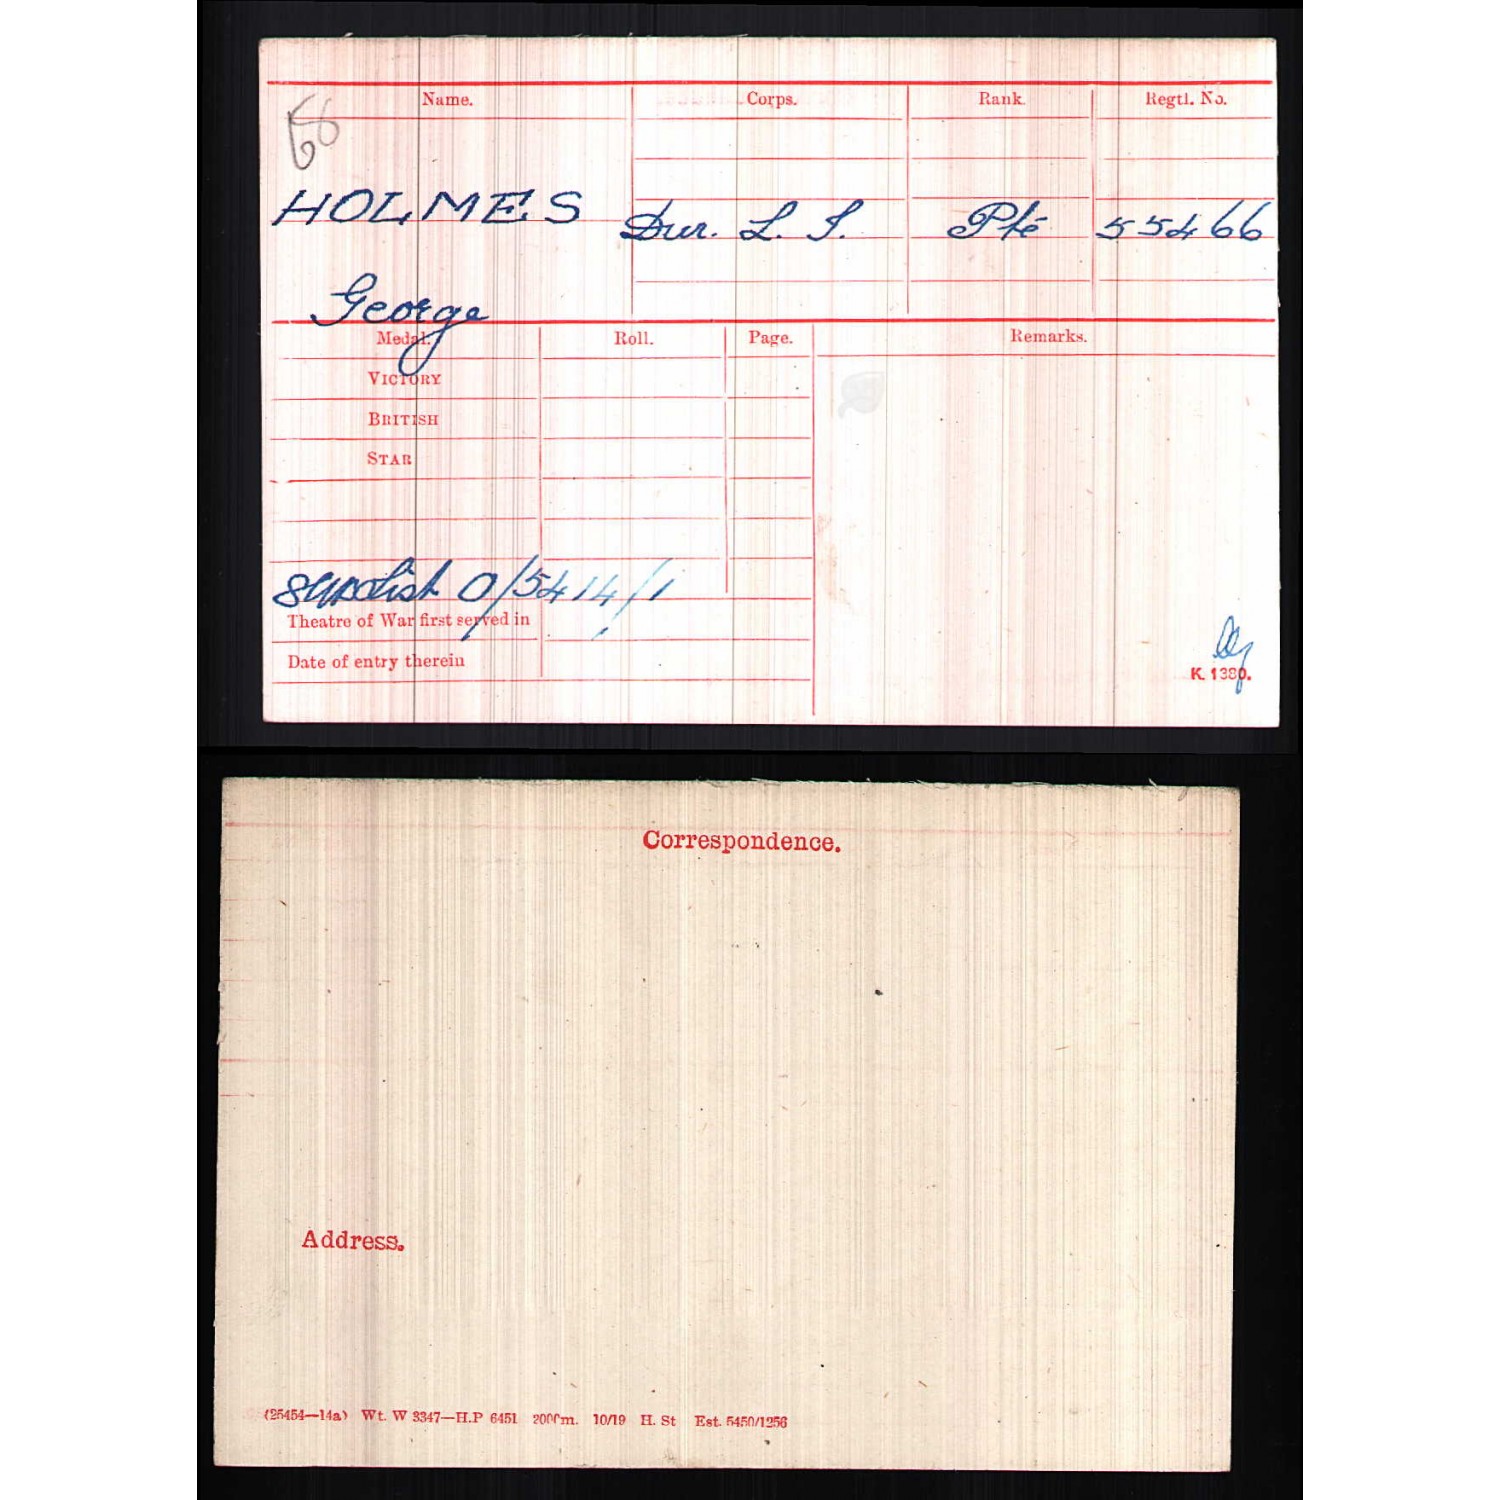 Name. Corps. Rank. Regtl. No.
HOLMES Dur. L. I. Pte 55466
George
Medal. Roll. Page. Remarks.
VICTORY
BRITISH
STAR
0/5414/1
Theatre of War first served in
Date of entry therein
K. 1380.
Correspondence.
Address.
(25454—14a) Wt. W 3347—H.P 6451 2000m. 10/19 H. St Est. 5450/1256